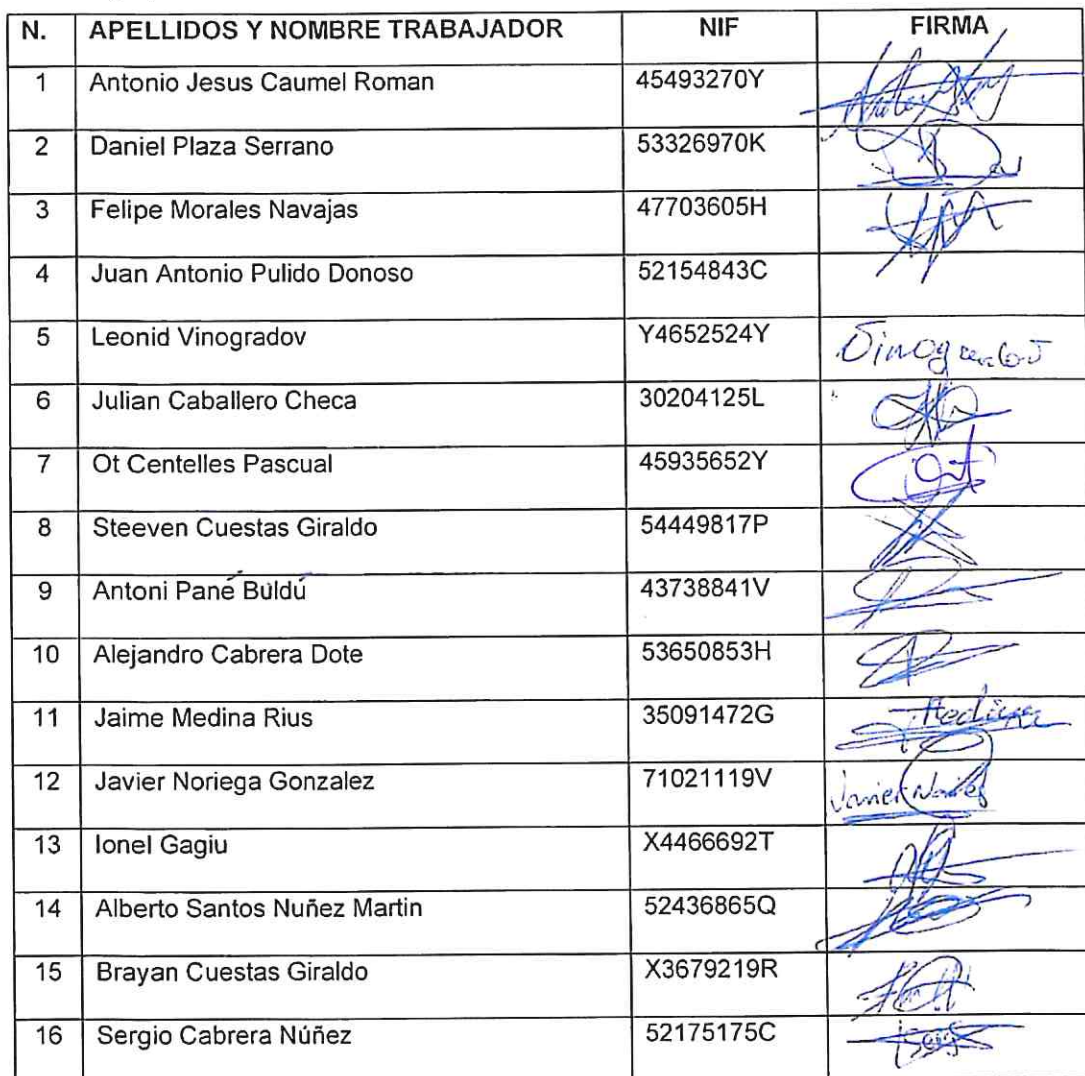 N. APELLIDOS Y NOMBRE TRABAJADOR NIF FIRMA
1 Antonio Jesus Caumel Roman 45493270Y
2 Daniel Plaza Serrano 53326970K
3 Felipe Morales Navajas 47703605H
4 Juan Antonio Pulido Donoso 52154843C
5 Leonid Vinogradov Y4652524Y
6 Julian Caballero Checa 30204125L
7 Ot Centelles Pascual 45935652Y
8 Steeven Cuestas Giraldo 54449817P
9 Antoni Pané Buldú 43738841V
10 Alejandro Cabrera Dote 53650853H
11 Jaime Medina Rius 35091472G
12 Javier Noriega Gonzalez 71021119V Javier
13 Ionel Gagiu X4466692T
14 Alberto Santos Nuñez Martin 52436865Q
15 Brayan Cuestas Giraldo X3679219R
16 Sergio Cabrera Núñez 52175175C